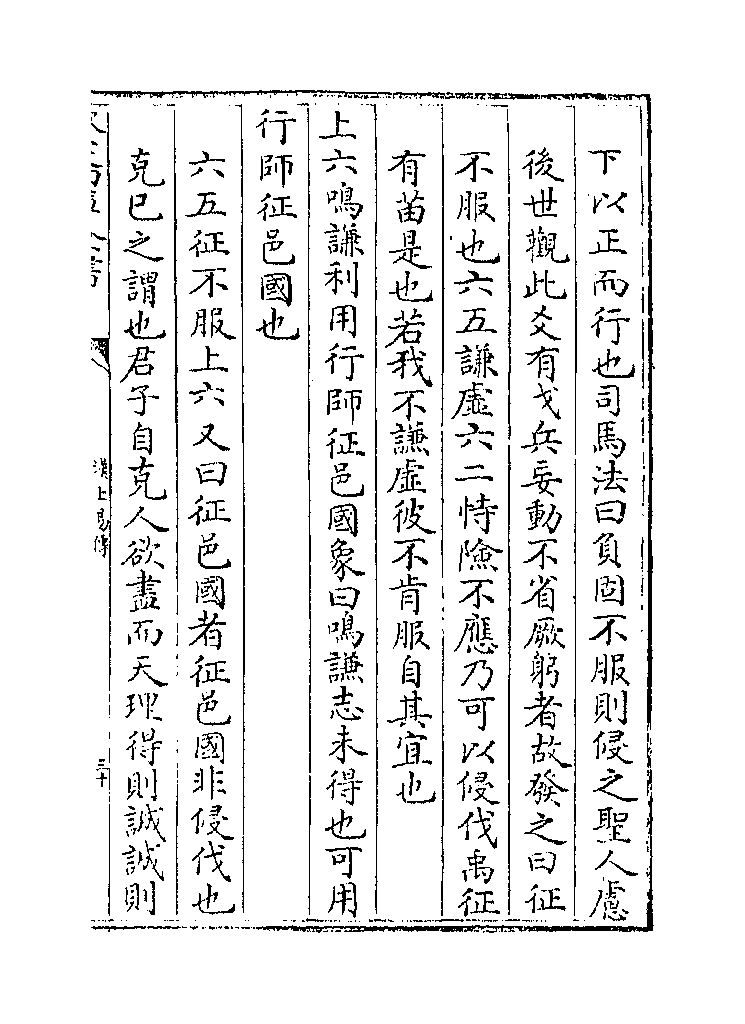 下以正而行也司馬法曰負固不服則侵之聖人慮
後世觀此爻有戈兵妄動不省厥躬者故發之曰征
不服也六五謙虛六二恃險不應乃可以侵伐禹征
有苗是也若我不謙虛彼不肯服自其宜也
上六鳴謙利用行師征邑國象曰鳴謙志未得也可用
行師征邑國也
六五征不服上六又曰征邑國者征邑國非侵伐也
克已之謂也君子自克人欲盡而天理得則誠誠則
漢上易傳
三十